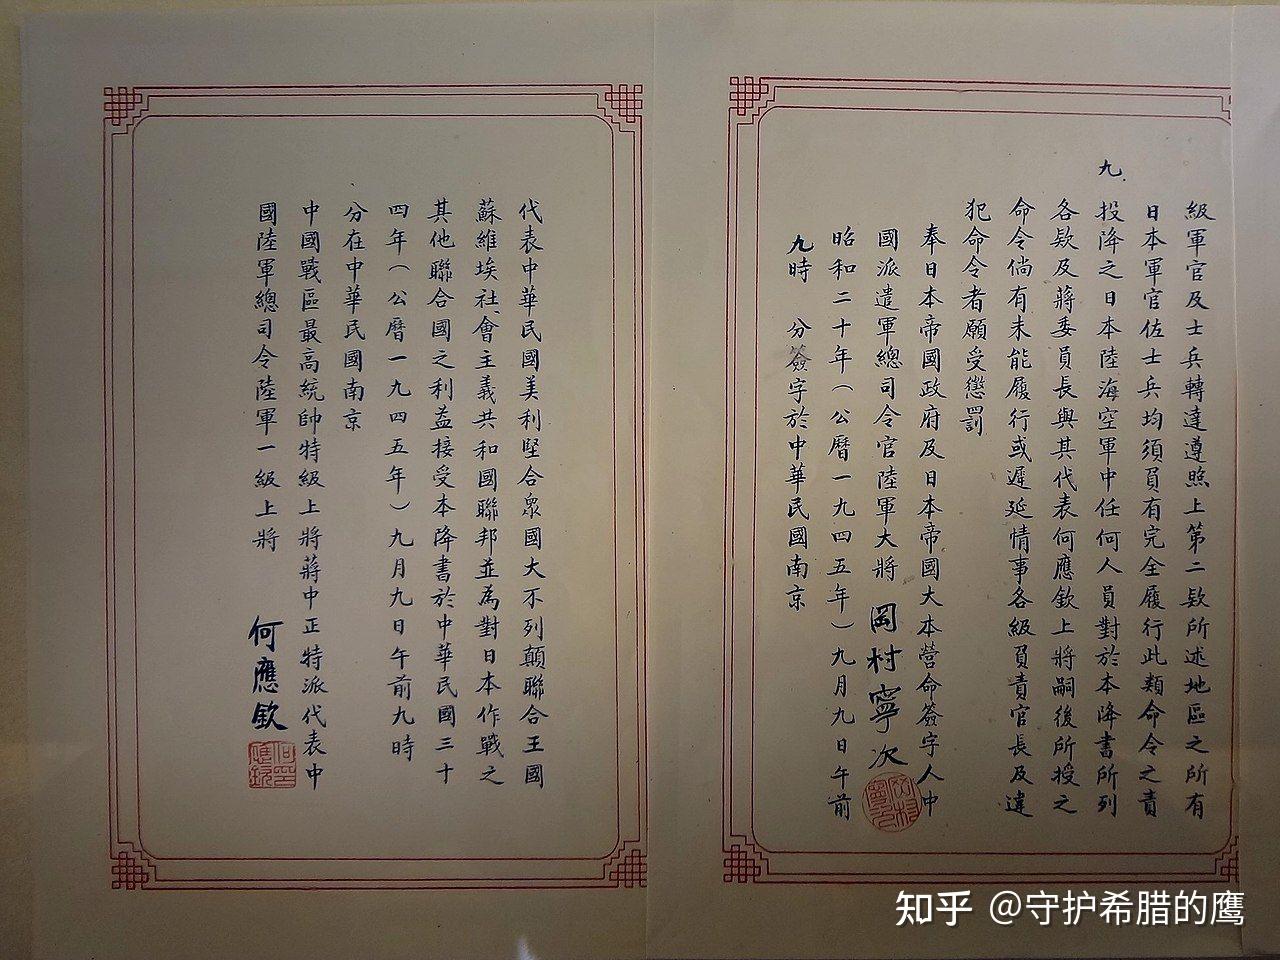 級軍官及士兵轉達遵照上第二欵所述地區之所有
日本軍官佐士兵均須負有完全履行此類命令之責
九.
投降之日本陸海空軍中任何人員對於本降書所列
各欵及蔣委員長與其代表何應欽上將嗣後所授之
命令倘有未能履行或遲延情事各級負責官長及違
犯命令者願受懲罰
奉日本帝國政府及日本帝國大本營命簽字人中
國派遣軍總司令官陸軍大將 岡村寧次
昭和二十年(公曆一九四五年)九月九日午前
九時 分簽字於中華民國南京
代表中華民國美利堅合眾國大不列顛聯合王國
蘇維埃社會主義共和國聯邦並為對日本作戰之
其他聯合國之利益接受本降書於中華民國三十
四年(公曆一九四五年)九月九日午前九時
分在中華民國南京
中國戰區最高統帥特級上將蔣中正特派代表中
國陸軍總司令陸軍一級上將 何應欽
何應欽
知乎 @守护希腊的鹰